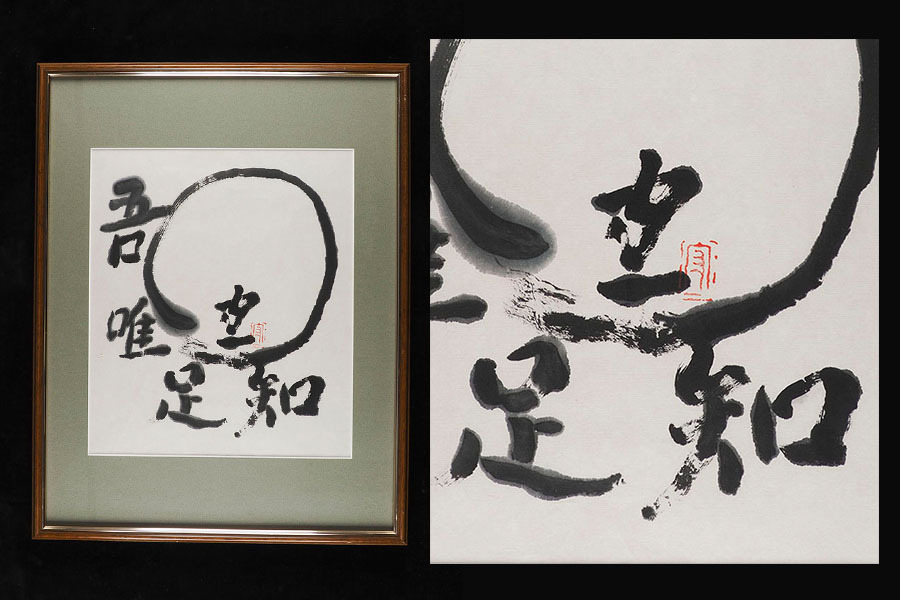 吾唯
足知
足知